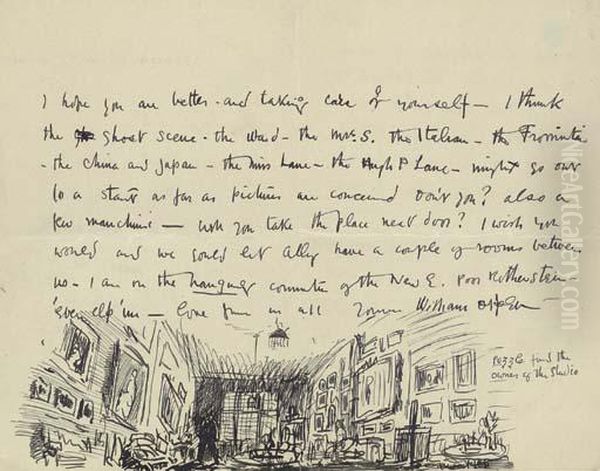 I hope you are better - and taking care of yourself - I think
the ghost scene - the Ward - the Mrs. S. the Italian - the
- the China and Japan - the Miss Lane - the Hugh P Lane - might go over
to a start as far as pictures are concerned Don't you? also a
few - will you take the place next door? I wish you
would and we could let Ally have a couple of rooms between
us - I am on the hanging committee of the New E. poor Rothenstein -
'Even elp 'im - love from us all William Orpen
puzzle find the
owner of the studio
NiceArtGallery.com